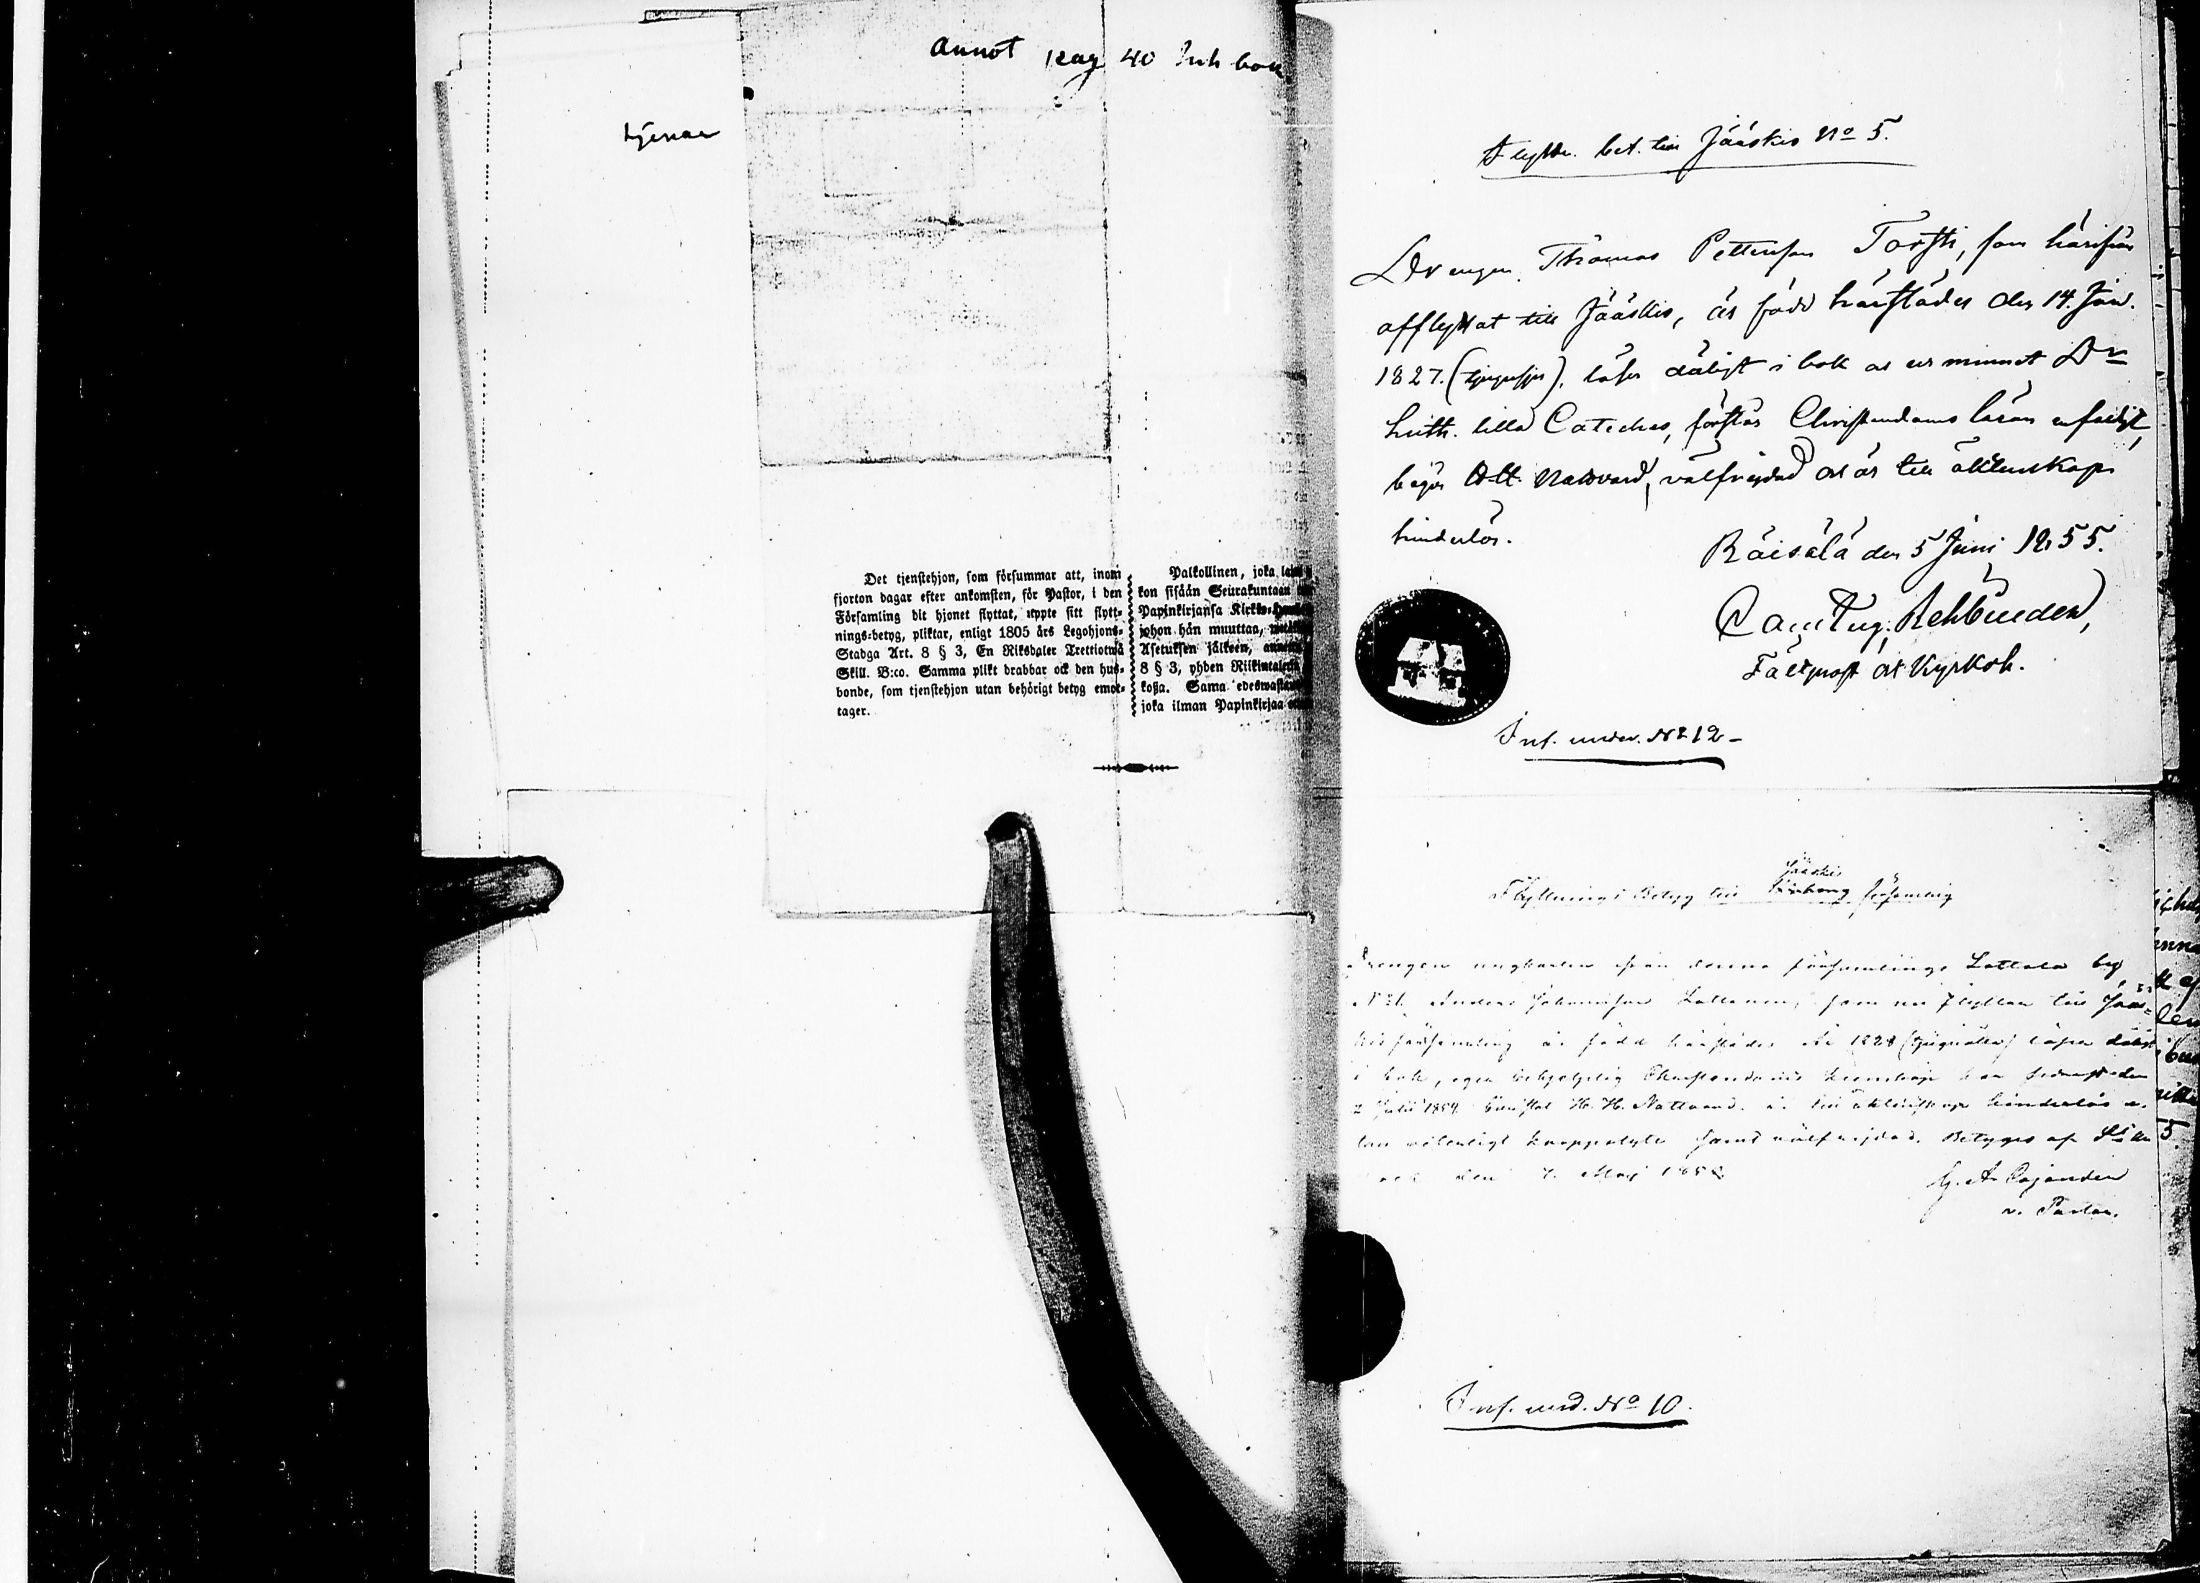 Annot pag 40 Inh bok
tjenar
Det tjenstehjon, som försummar att, inom
fjorton dagar efter ankomsten, för Pastor, i den
Församling dit hjonet flyttat, uppte sitt flytt-
nings-betyg, pliktar, enligt 1805 års Legohjons-
Stadga Art. 8 § 3, En Riksdaler Trettiotwå
Skill. B:co. Samma plikt drabbar ock den hus-
bonde, som tjenstehjon utan behörigt betyg emot-
tager.
Palkollinen, joka
kon sisään Seurakuntaan
Papinkirjansa Kirkko-
johon hän muuttaa,
Asetuksen jälkeen,
8 § 3, yhden Riikintalerin
koßa. Sama edeswastaus
joka ilman Papinkirjaa
Flyttn. bet. till Jääskis No 5.
Drengen Thomas Pettersson Torsti, som härifrån
afflyttat till Jääskis, är född härstädes den 14. Jan.
1827. (tjugusju), läser dåligt i bok och ur minnet Dr
Luth. lilla Cateches, förstår Christendoms läran enfaldigt,
begår H.H. Nattvard, välfrejdad och är till äktenskap
hinderlös.
Räisälä den 5 Juni 1855.
Carl Aug. Rehbinder,
Fältprost och Kyrkoh.
Inf. under. No 12-
Jääskis
Flyttnings Betyg till Wiborg församling
Drengen ungkarlen från denna församlings Lottola by
No 21. Anders Johansson Lottonen, som nu flyttar till Jääs=
kis församling är född härstädes år 1828 (tjuguåtta) läser dåligt
i bok, eger behjelplig Christendoms kunskap har sednast den
2 Julii 1854 bevistat H. H. Nattvard. är till äktenskap hinderlös
välfrejdad. Betygas af
den 7. Maj 185
G. A. Cajander
v. Pastor.
Inf. und. No 10.